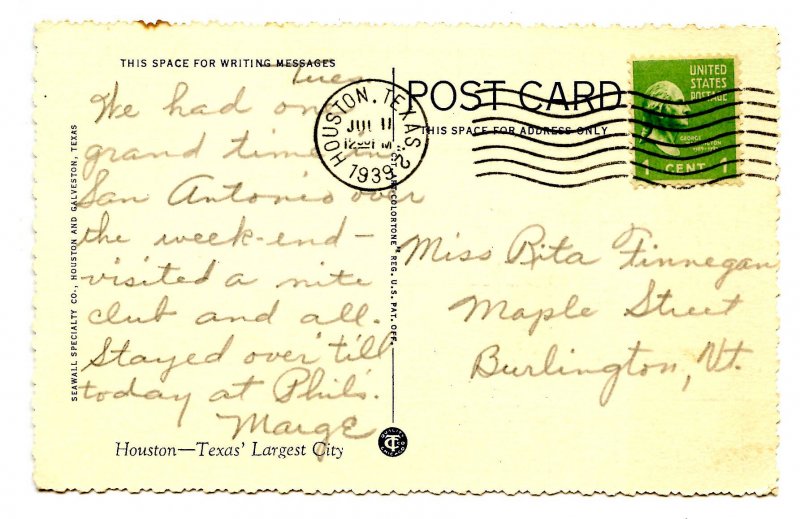 THIS SPACE FOR WRITING MESSAGES
Tues.
We had one
grand time in
San Antonio over
the week-end –
visited a nite
club and all.
Stayed over 'till
today at Phil's.
Marge
Houston—Texas' Largest City
SEAWALL SPECIALTY CO., HOUSTON AND GALVESTON, TEXAS
COLORTONE" REG. U.S. PAT. OFF.
POST CARD
THIS SPACE FOR ADDRESS ONLY
HOUSTON, TEXAS 2
JUL 11
12 PM
1939
UNITED
STATES
POSTAGE
GEORGE
1 CENT 1
Miss Rita Finnegan
Maple Street
Burlington, Vt.
CT